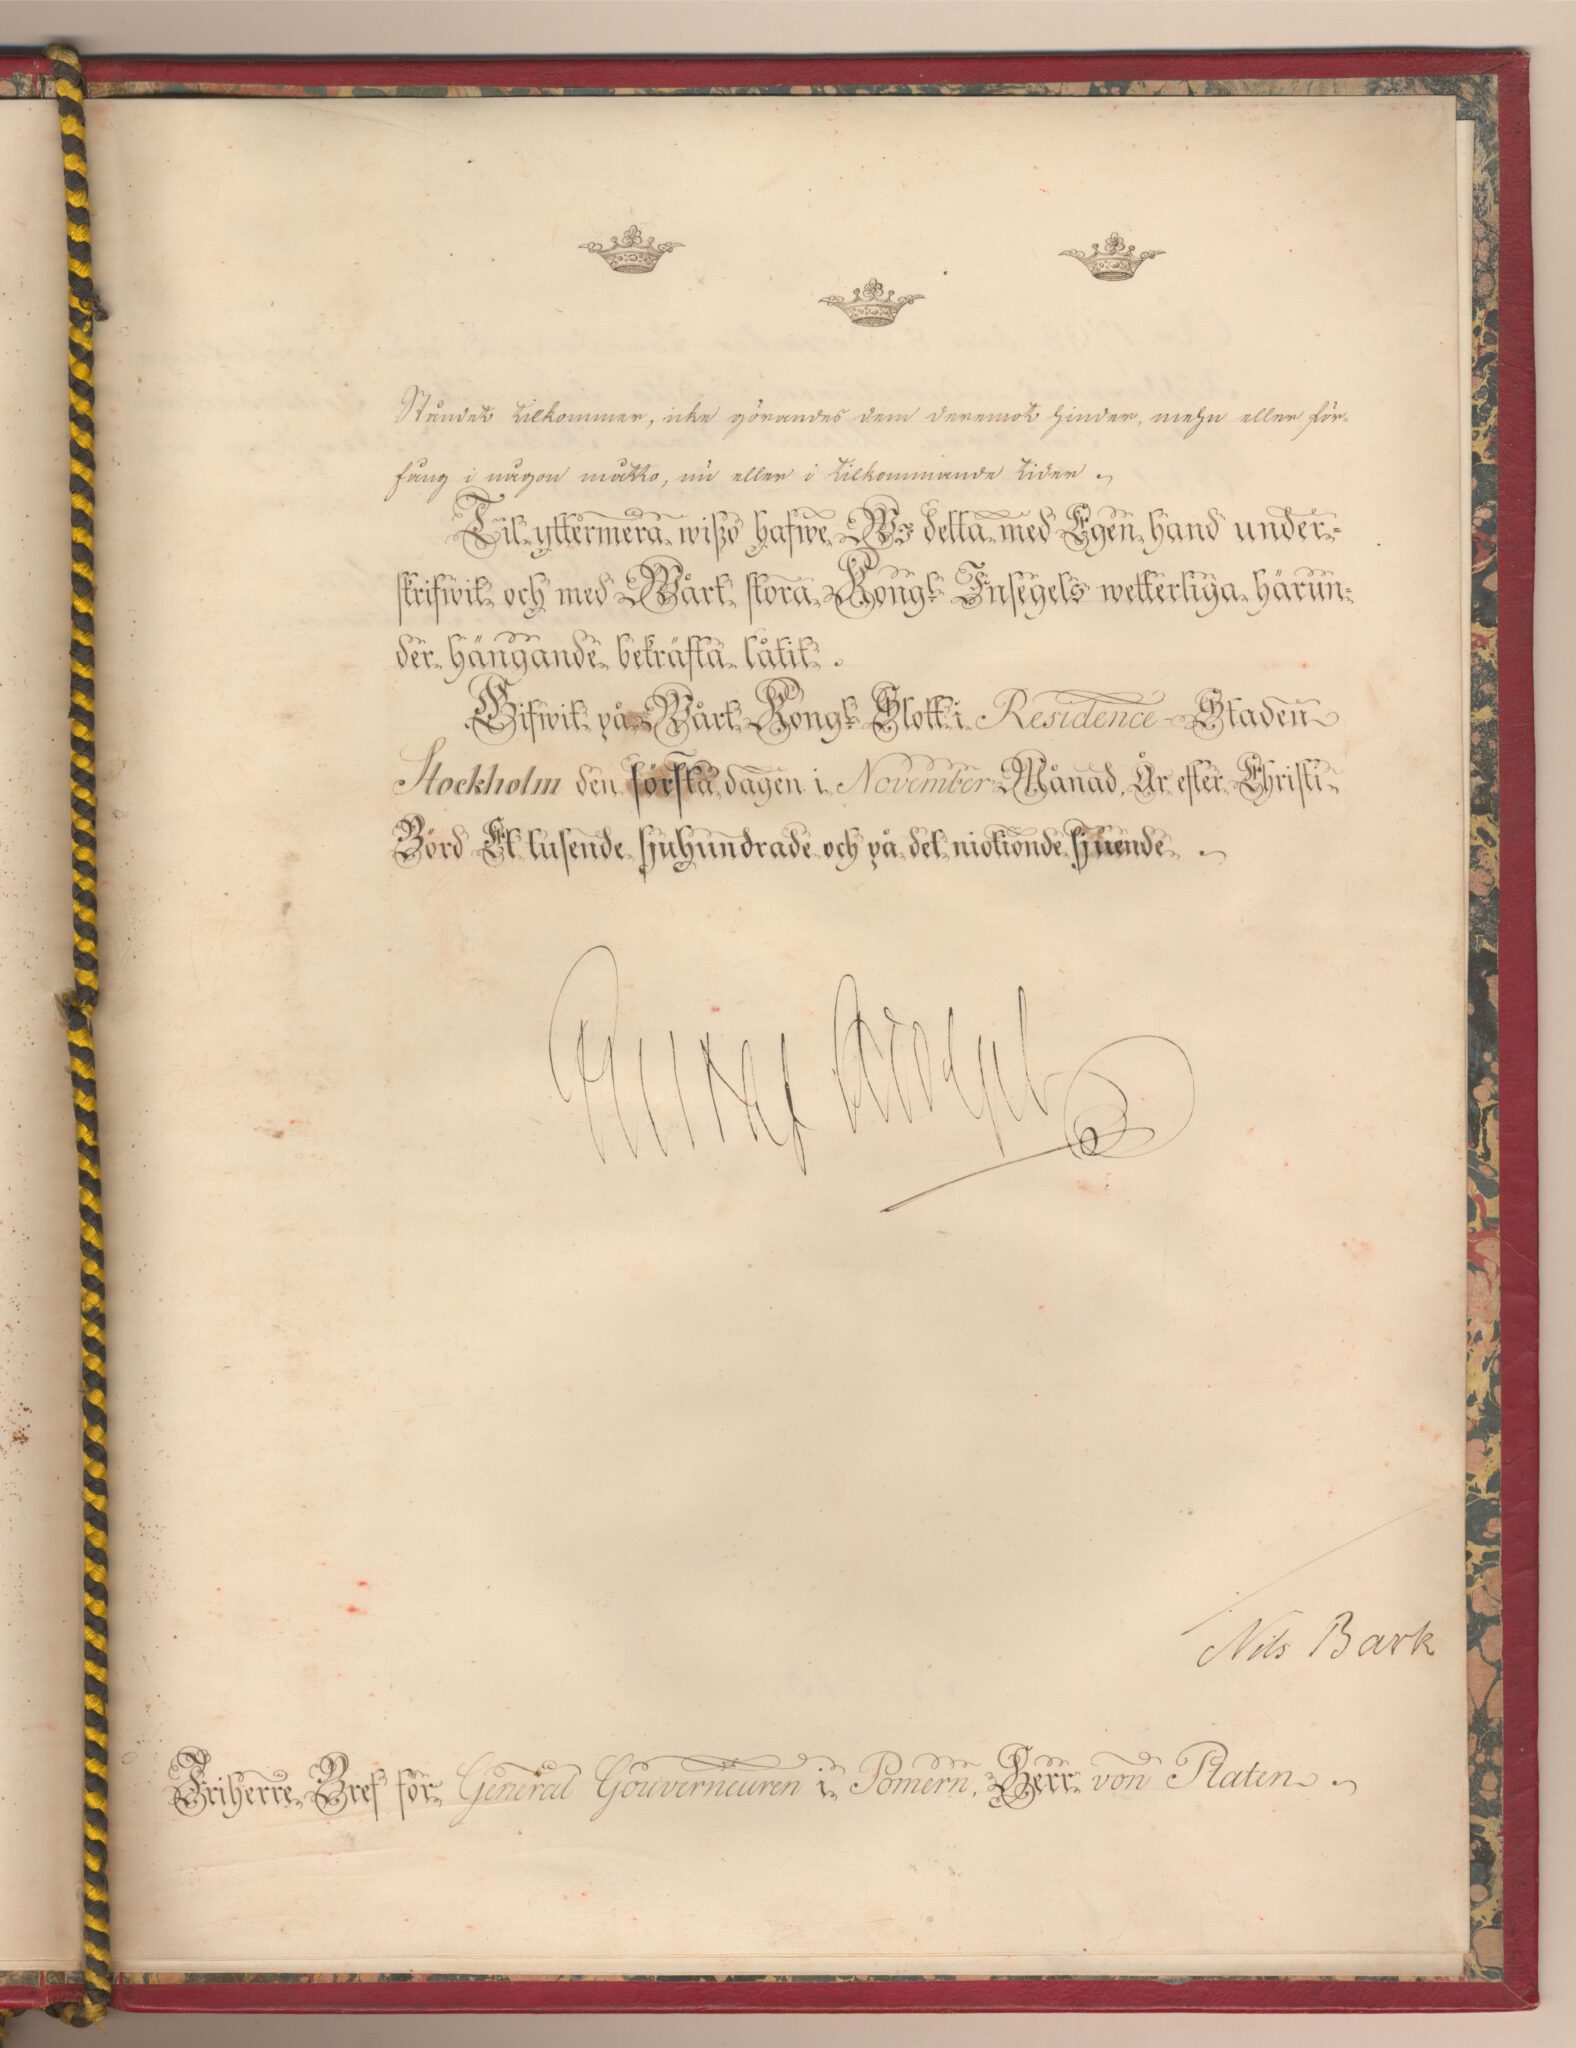 Ståndet tilkommer, icke görandes dem deremot hinder, mehn eller för-
fång i någon måtto, nu eller i tilkommande tider.
Til yttermera wißo hafwe Wi detta med Egen hand under-
skrifwit och med Wårt stora Kongl. Insegels wetterliga härun-
der hängande bekräfta låtit.
Gifwit på Wårt Kongl. Slott i Residence-Staden
Stockholm den första dagen i November Månad, År efter Christi
Börd Et tusende sjuhundrade och på det niotionde sjuende.
Gustaf Adolph
Nils Bark
Friherre Bref för General Gouverneuren i Pomern, Herr von Platen.